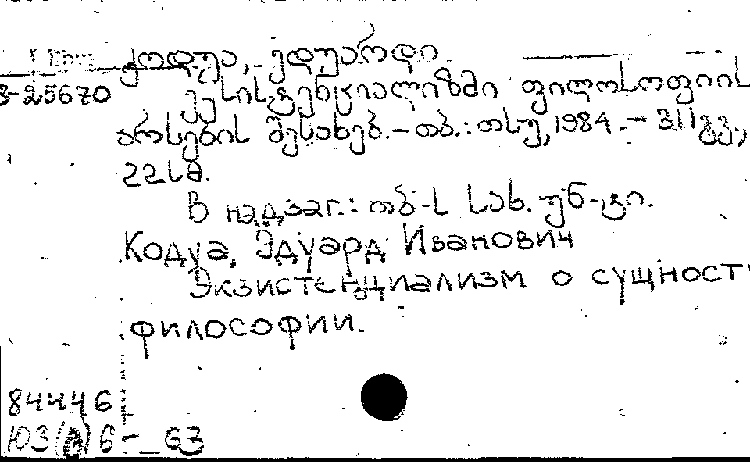 კოდუა, ედუარდი.
3-25670
ექსისტენციალიზმი ფილოსოფიის
არსების შესახებ. – თბ.: თსუ, 1984. – 311გვ.,
22სმ.
В надзаг.: თბ-ს სახ. უნ-ტი.
Кодуа, Эдуард Иванович
Экзистенциализм о сущност
философии.
84446
Ю3(2)6 – 63